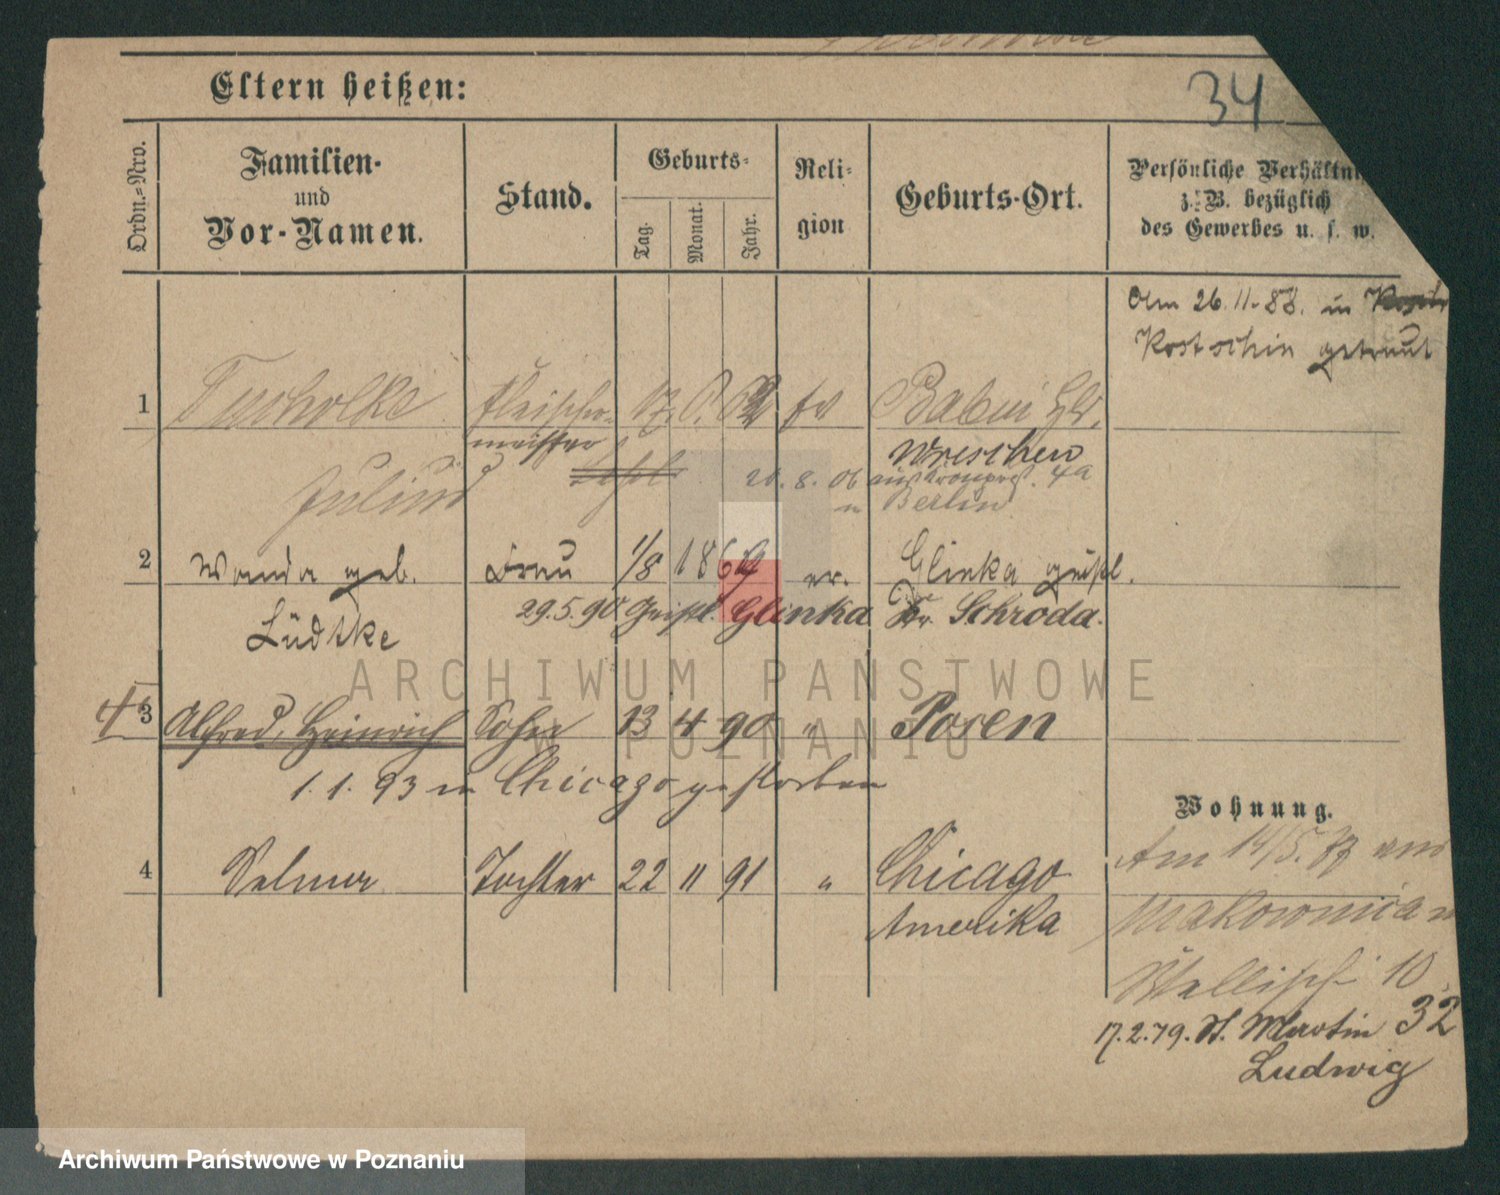 34
Eltern heißen:
Ordn.-Nro.
Familien-
und
Vor-Namen.
Stand.
Geburts-
Tag.
Monat.
Jahr.
Reli-
gion
Geburts-Ort.
Persönliche Verhältni
z. B. bezüglich
des Gewerbes u. s. w.
Am 26.11.88. in
Kostschin getraut
1 Tucholke Fleischer- ev
meister Wreschen
Julius 20. 8. 06 aus 4a
in Berlin
2 Wanda geb. Frau 1/8 1869 ev. Glinka geistl.
Lüdtke 29.5.90 Geistl. Glinka Kr. Schroda.
3 Alfred, Heinrich Sohn 13 4 90 " Posen
1. 1. 93 in Chicago gestorben
Wohnung.
4 Selma Tochter 22 11 91 " Chicago
Amerika
Am 14/5. 89 aus
Makownica
Wallisch 10
17.2.79. St. Martin 32
Ludwig
ARCHIWUM PAŃSTWOWE
W POZNANIU
Archiwum Państwowe w Poznaniu